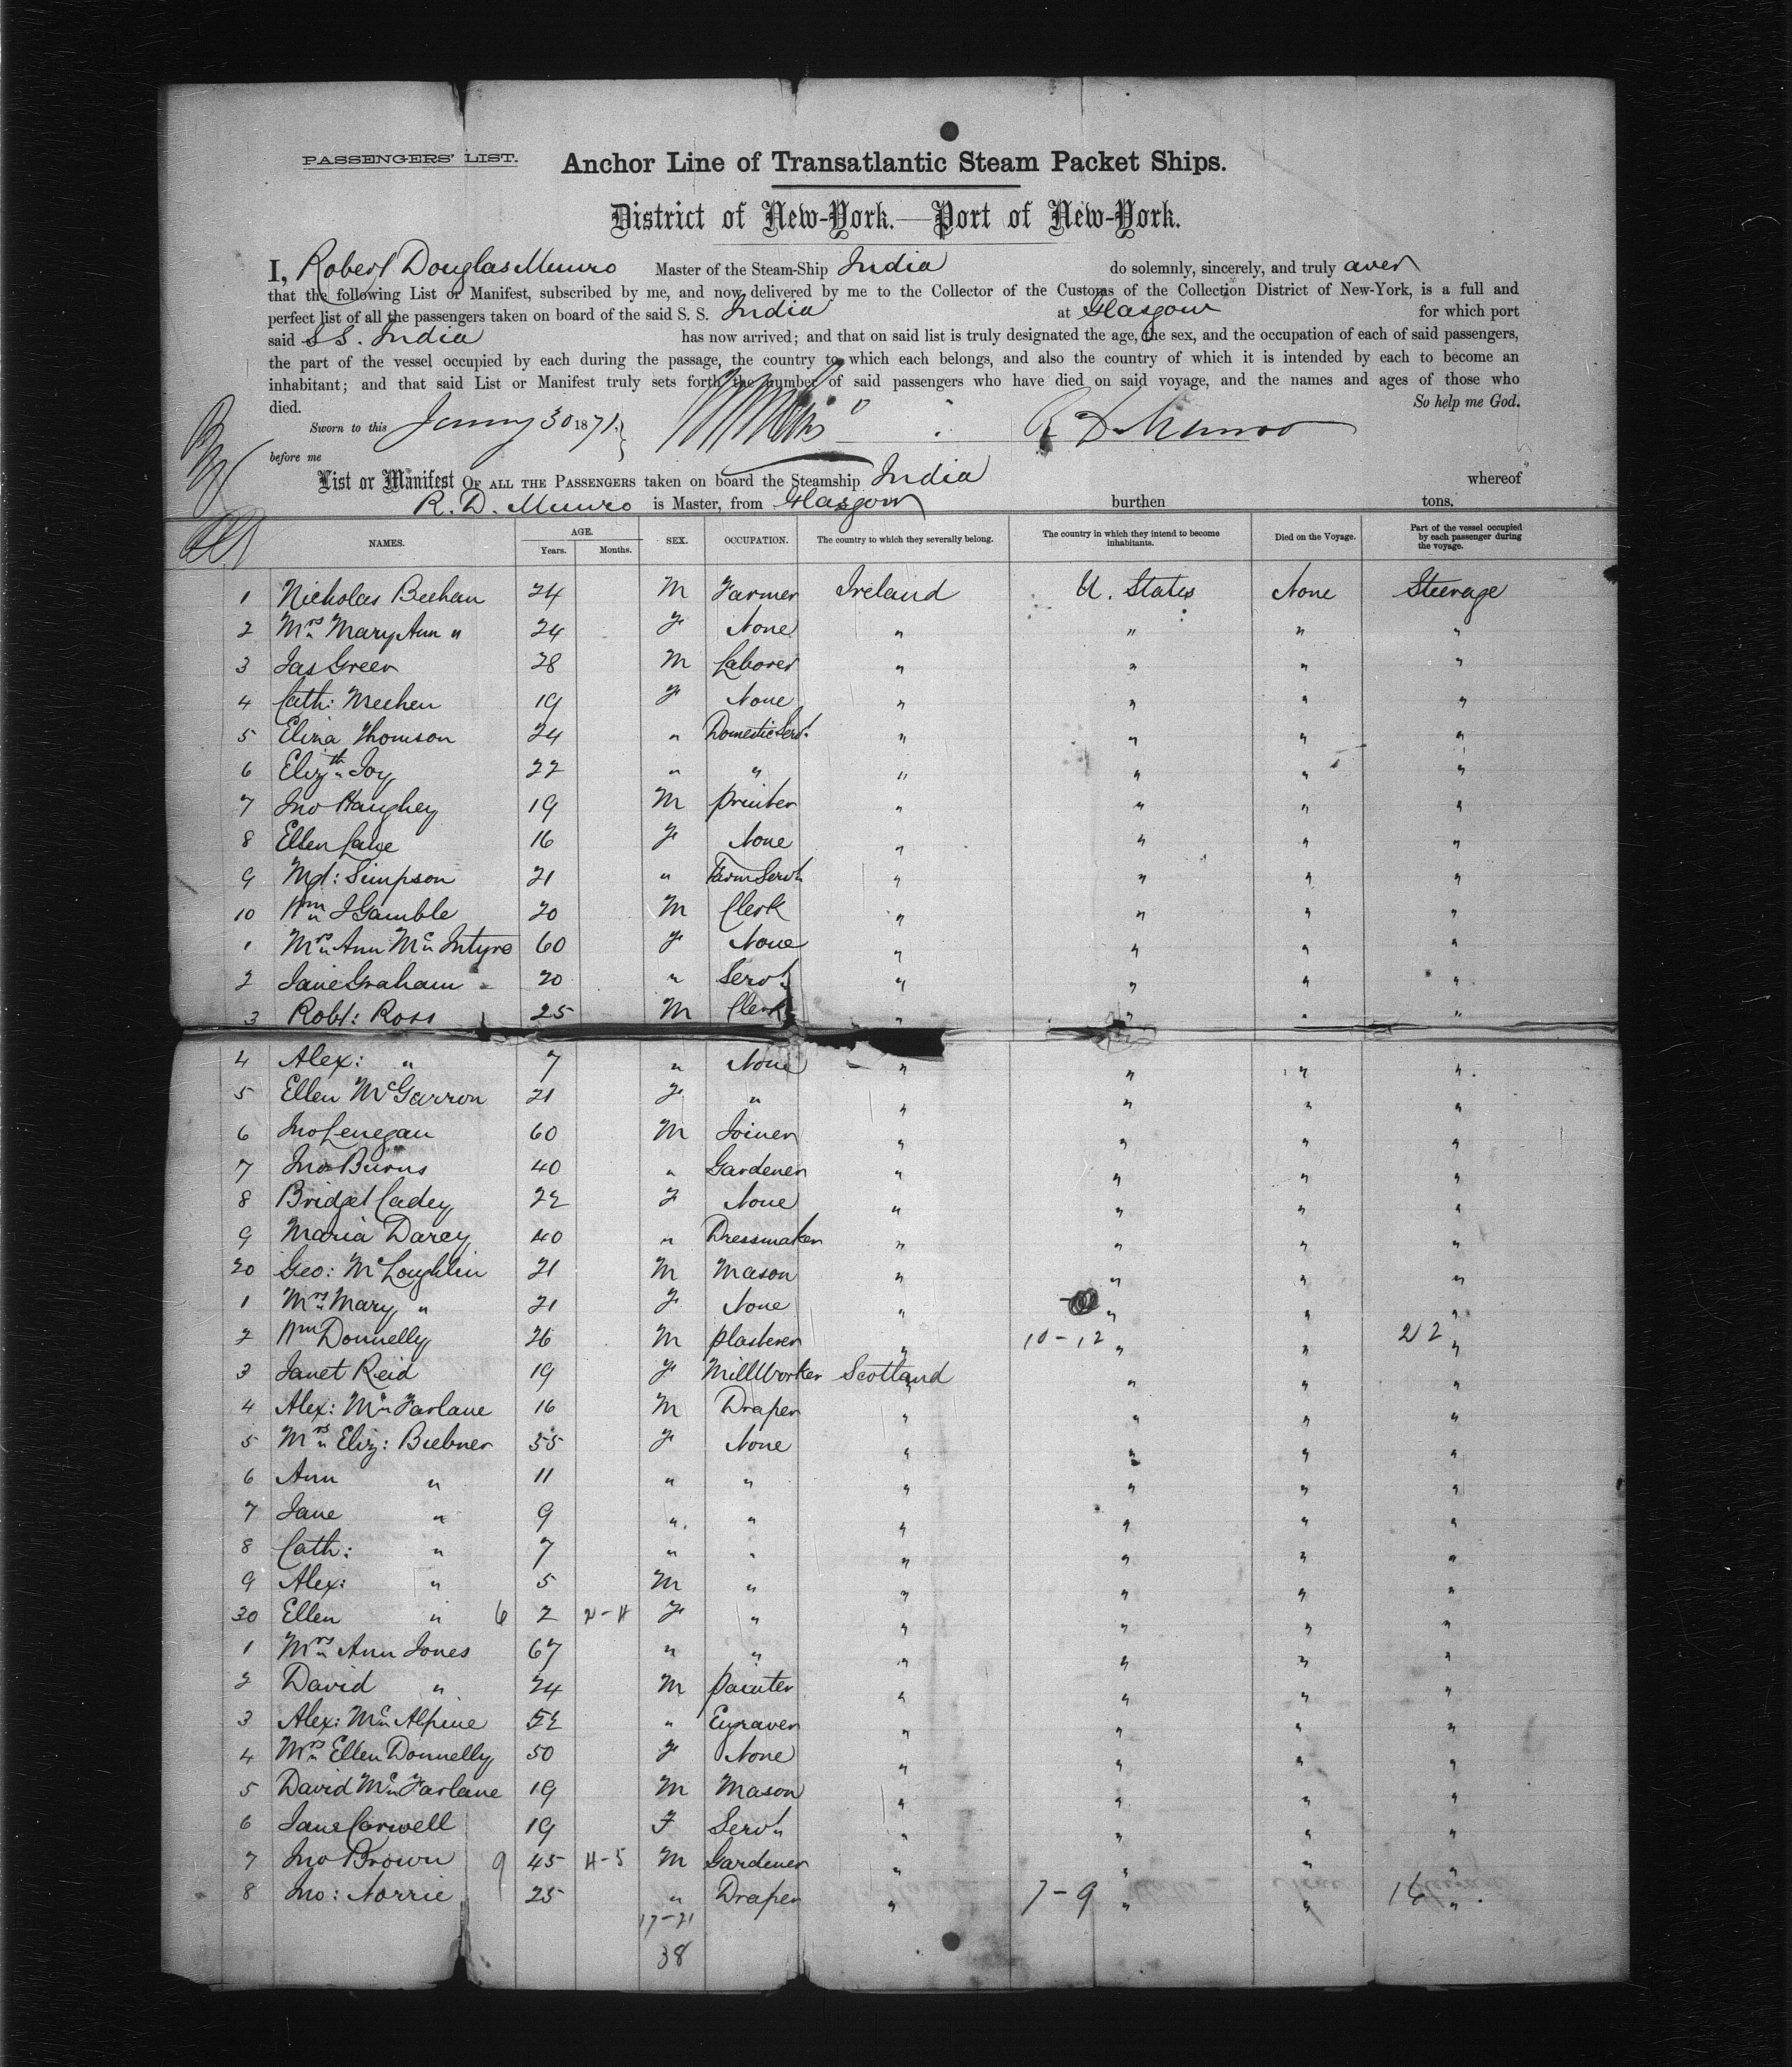 PASSENGERS' LIST. Anchor Line of Transatlantic Steam Packet Ships.
District of New-York.—Port of New-York.
I, Robert Douglas Munro Master of the Steam-Ship India do solemnly, sincerely, and truly aver
that the following List or Manifest, subscribed by me, and now delivered by me to the Collector of the Customs of the Collection District of New-York, is a full and
perfect list of all the passengers taken on board of the said S. S. India at Glasgow for which port
said SS. India has now arrived; and that on said list is truly designated the age, the sex, and the occupation of each of said passengers,
the part of the vessel occupied by each during the passage, the country to which each belongs, and also the country of which it is intended by each to become an
inhabitant; and that said List or Manifest truly sets forth the number of said passengers who have died on said voyage, and the names and ages of those who
died. So help me God.
Sworn to this 30 1871. R D Munro
before me
List or Manifest OF ALL THE PASSENGERS taken on board the Steamship India whereof
R. D. Munro is Master, from Glasgow burthen tons.
NAMES. AGE. Years. Months. SEX. OCCUPATION. The country to which they severally belong. The country in which they intend to become inhabitants. Died on the Voyage. Part of the vessel occupied by each passenger during the voyage.
1 Nicholas Beehan 24 M Farmer Ireland U. States None Steerage
2 Mrs Mary Ann " 24 F None " " " "
3 Jas Green 28 M Laborer " " " "
4 Cath: Meehen 19 F None " " " "
5 Eliza Thomson 24 " Domestic Servt. " " " "
6 Elizth Joy 22 " " " " " "
7 Jno Haughey 19 M Printer " " " "
8 Ellen 16 F None " " " "
9 Mgt: Simpson 21 " Farm Servt " " " "
10 Wm J Gamble 20 M Clerk " " " "
1 Mrs Ann Mc Intyre 60 F None " " " "
2 Jane Graham 20 " Servt. " " " "
3 Robt: Ross 25 M Clerk " " " "
4 Alex: " 7 " None " " " "
5 Ellen McGarron 21 F " " " " "
6 Jno Lenegan 60 M Joiner " " " "
7 Jno Burns 40 " Gardener " " " "
8 Bridget Cadey 22 F None " " " "
9 Maria Darcy 40 " Dressmaker " " " "
20 Geo: McLoughlin 21 M Mason " " " "
1 Mrs Mary " 21 F None " " " "
2 Wm Donnelly 26 M Plasterer " 10-12 " " 22 "
3 Janet Reid 19 F Mill Worker Scotland " " "
4 Alex: Mc Farlane 16 M Draper " " " "
5 Mrs Eliz: Buebner 35 F None " " " "
6 Ann " 11 " " " " " "
7 Jane " 9 " " " " " "
8 Cath: " 7 " " " " " "
9 Alex: " 5 M " " " " "
30 Ellen " 6 2 F " " " " "
1 Mrs Ann Jones 67 " " " " " "
2 David " 24 M Painter " " " "
3 Alex: Mc Alpine 52 " Engraver " " " "
4 Mrs Ellen Donnelly 50 F None " " " "
5 David Mc Farlane 19 M Mason " " " "
6 Jane Carwell 19 F Servt " " " "
7 Jno Brown 9 45 4-5 M Gardener " " " "
8 Jno: Norrie 25 " Draper " 7-9 " " 16 "
17-21
38